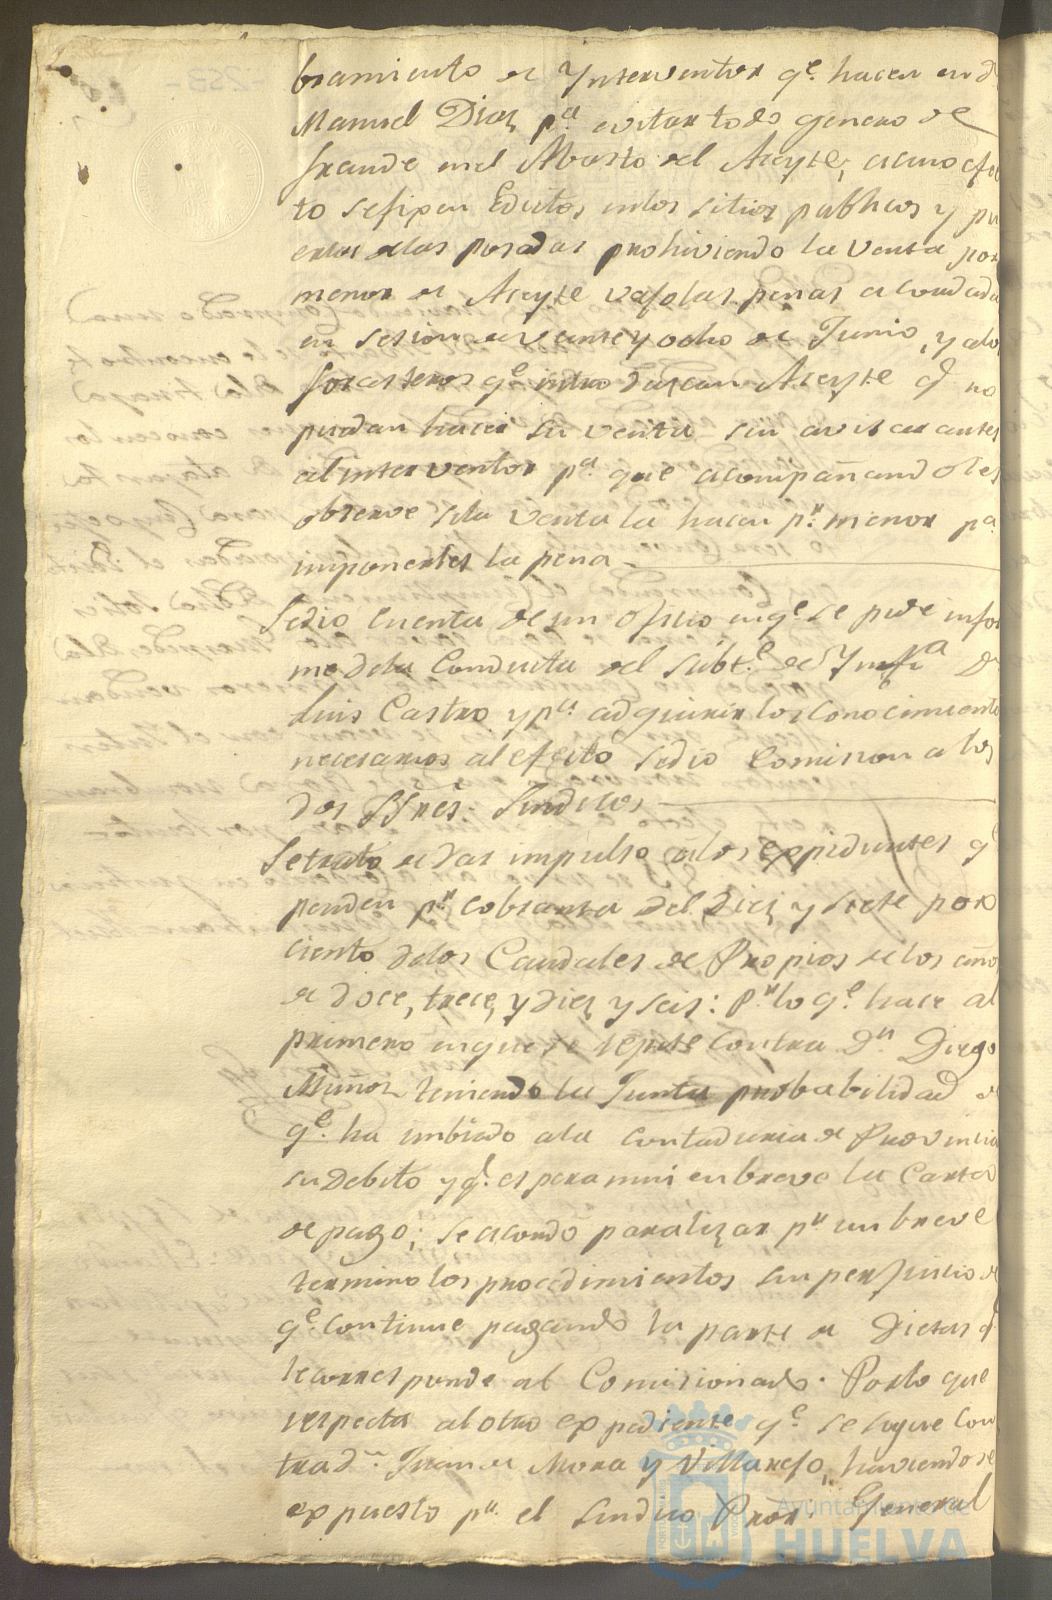 bramiento de Ynterventor qe. hacen en dn
Manuel Diaz pa. evitar todo genero de
fraude en el Abasto del Aceyte; a cuio efec
to se fixen Edictos en los sitios publicos y pu
ertas de las posadas prohiviendo la venta por
menor de Aceyte vajo las penas acordadas
en sesion de veinte y ocho de Junio, y a los
forasteros qe. introduzcan Aceyte qe no
puedan hacer su venta sin avisar antes
al interventor pa. que acompañandoles
observe si la venta la hacen pr. menor pa.
imponerles la pena
Se dio cuenta de un oficio en qe. se pide infor
me de la Conducta del Subte. de Ynfa. Dn
Luis Castro, y pa. adquirir los conocimientos
necesarios al efecto se dio comision a los
dos SSres. Sindicos
Se trato de dar impulso a los expedientes qe
penden pr. cobranza del Diez y siete por
ciento de los Caudales de Propios de los años
de doce, trece, y diez y seis: Pr. lo qe. hace al
primero en que se repite contra Dn. Diego
Muñoz teniendo la Junta probabilidad de
qe. ha imbiado a la Contaduria de Provincia
su Debito y qe. espera mui en breve la Carta
de pago; se acordó paralizar pr. un breve
termino los procedimientos sin perjuicio de
qe. continue pagando la parte de Dietas qe
le corresponde al Comisionado. Por lo que
respecta al otro expediente qe. se sigue con
tra dn. Juan de Mora y Villarejo, haviendose
expuesto pr. el Sindico Pror. General
Ayuntamiento de
HUELVA